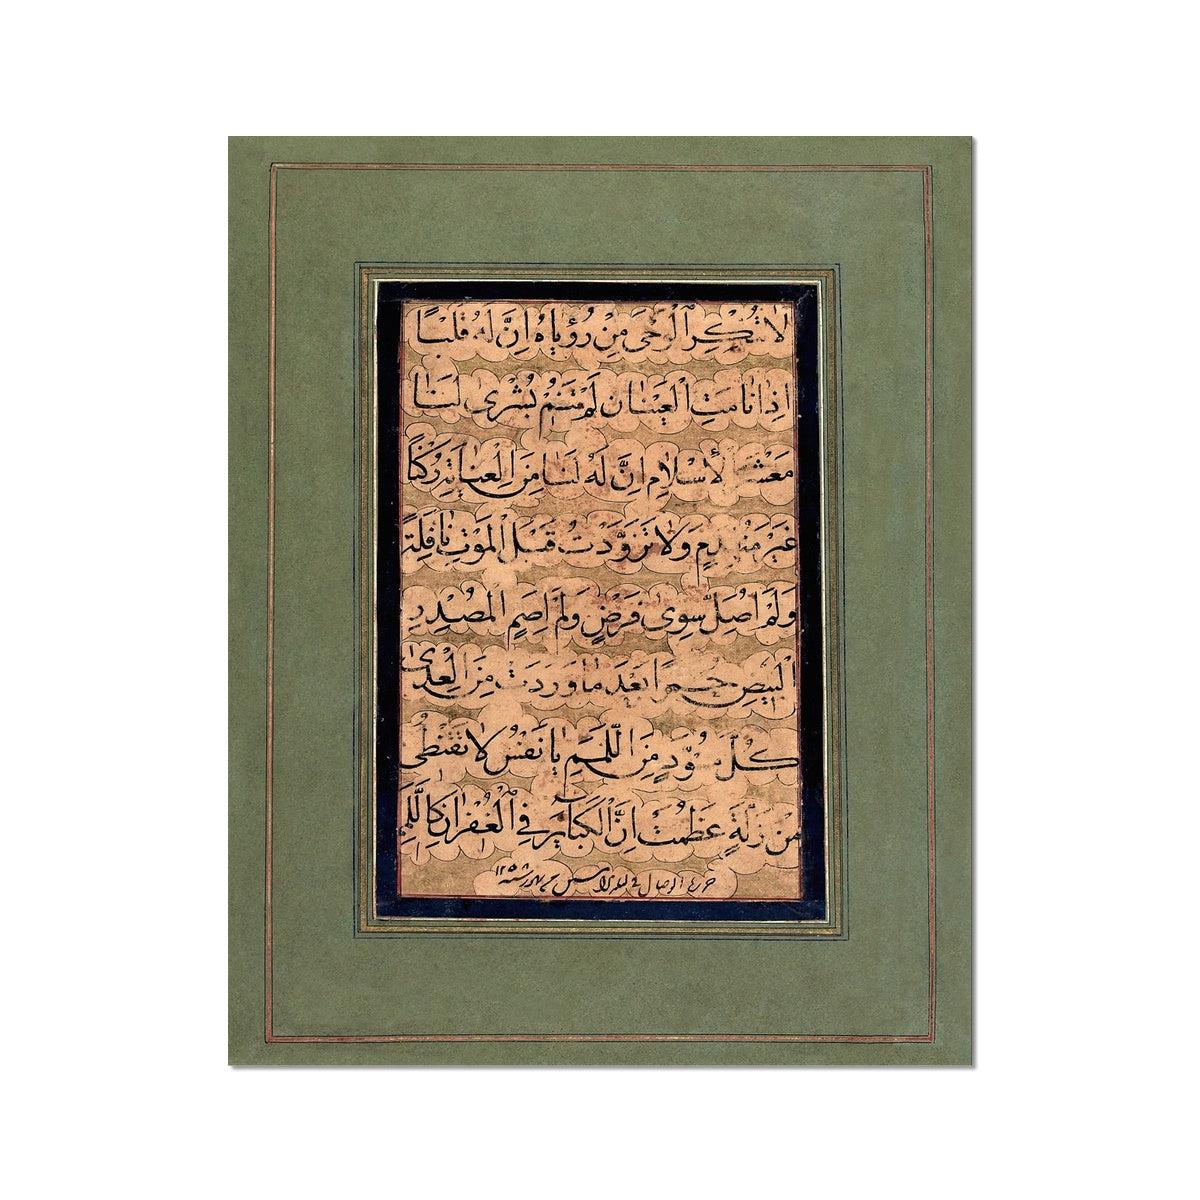 لَا تُنْكِرِ الْوَحْىَ مِنْ رُؤْيَاهُ اِنَّ لَهُ قَلْبًا
اِذَا نَامَتِ الْعَيْنَانِ لَمْ يَنَمِ بُشْرٰى لَنَا
مَعْشَرَ الْاِسْلَامِ اِنَّ لَهُ لَنَا مِنَ الْعِنَايَةِ رُكْنًا
غَيْرَ مُنْهَدِمٍ وَلَا تَزَوَّدْتُ قَبْلَ الْمَوْتِ نَافِلَةً
وَلَمْ اُصَلِّ سِوٰى فَرْضٍ وَلَمْ اَصُمِ الْمُصْدِرِ
الْبِيضِ حُمْرًا بَعْدَ مَا وَرَدَتْ مِنَ الْعِدٰى
كُلَّ مُسْوَدٍّ مِنَ اللِّمَمِ يَا نَفْسُ لَا تَقْنَطِى
مِنْ زَلَّةٍ عَظُمَتْ اِنَّ الْكَبَائِرَ فِى الْغُفْرَانِ كَاللَّمَمِ
سنه ١٢٥